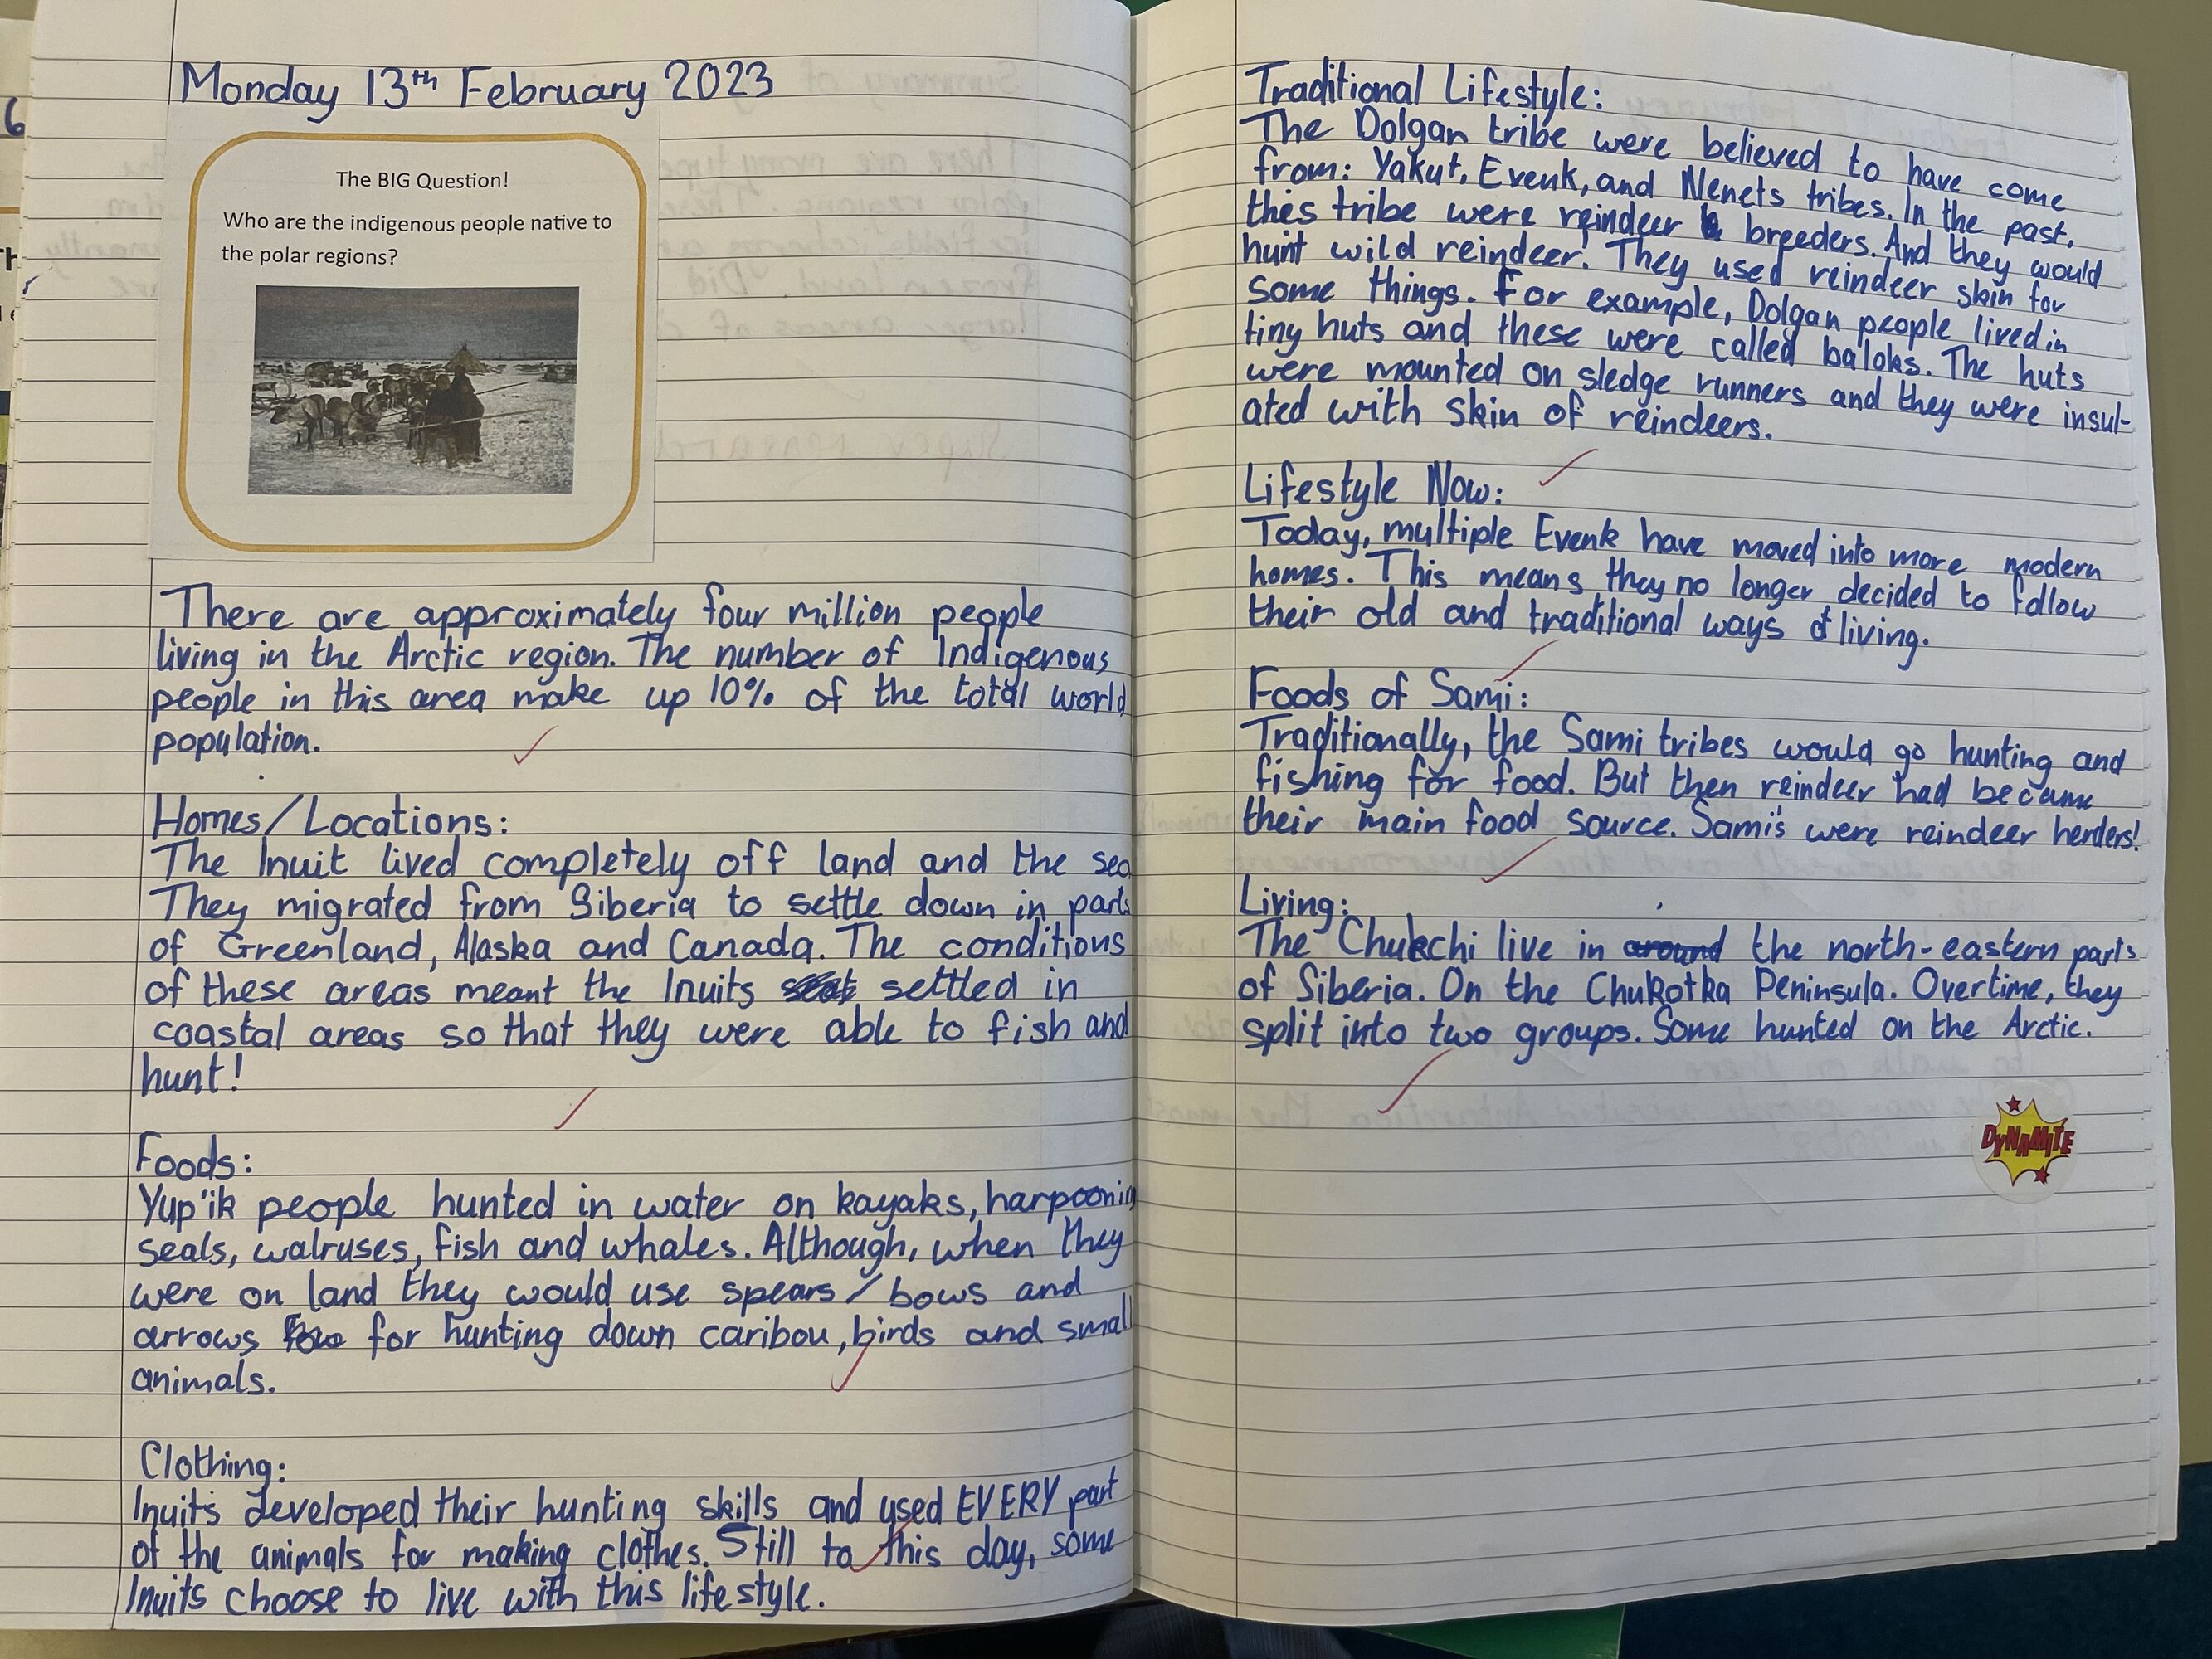 Monday 13th February 2023
The BIG Question!
Who are the indigenous people native to
the polar regions?
There are approximately four million people
living in the Arctic region. The number of Indigenous
people in this area make up 10% of the total world
population.
Homes/Locations:
The Inuit lived completely off land and the sea
They migrated from Siberia to settle down in parts
of Greenland, Alaska and Canada. The conditions
of these areas meant the Inuits settled in
coastal areas so that they were able to fish and
hunt!
Foods:
Yup'ik people hunted in water on kayaks, harpooning
seals, walruses, fish and whales. Although, when they
were on land they would use spears/bows and
arrows for hunting down caribou, birds and small
animals.
Clothing:
Inuits developed their hunting skills and used EVERY part
of the animals for making clothes. Still to this day, some
Inuits choose to live with this lifestyle.
Traditional Lifestyle:
The Dolgan tribe were believed to have come
from: Yakut, Evenk, and Nenets tribes. In the past,
this tribe were reindeer breeders. And they would
hunt wild reindeer. They used reindeer skin for
some things. For example, Dolgan people lived in
tiny huts and these were called baloks. The huts
were mounted on sledge runners and they were insul-
ated with skin of reindeers.
Lifestyle Now:
Today, multiple Evenk have moved into more modern
homes. This means they no longer decided to follow
their old and traditional ways of living.
Foods of Sami:
Traditionally, the Sami tribes would go hunting and
fishing for food. But then reindeer had became
their main food source. Sami's were reindeer herders!
Living:
The Chukchi live in around the north-eastern parts
of Siberia. On the Chukotka Peninsula. Overtime, they
split into two groups. Some hunted on the Arctic.
DYNAMITE